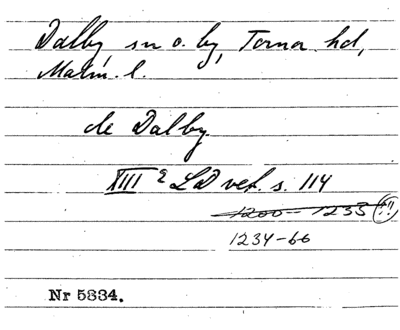 Dalby, sn o. by, Torna hd,
Malm. l.
de Dalby
XIII 2 LD vet. s. 114
1200–1235 (!!)
1234–66
Nr 5834.